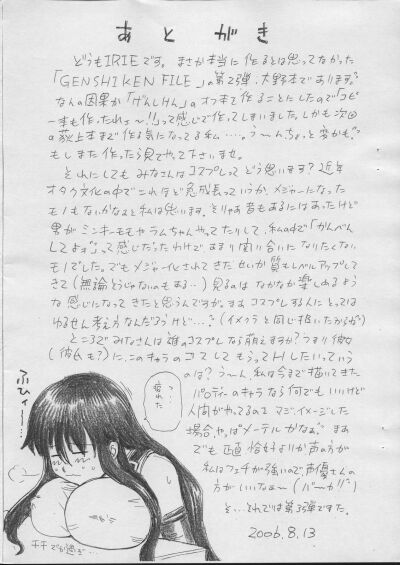 あとがき
どうもIRIEです。まさか本当に作るとは思ってなかった
「GENSHIKEN FILE」の第2弾、大野本であります。
なんの因果か「げんしけん」のオフ本で作ることにしたので「コピー
本も作ったれょ〜!!」って感じで作ってしまいました。しかも次回
の荻上本まで作る気になってる私…。う〜ん、ちょっと変かも?
もしまた作ったら見てやって下さいませ。
それにしてもみなさんはコスプレってどう思います?近年
オタク文化の中でこれほど急成長っていうか、メジャーになった
モノもないかなぁと私は思います。そりゃあ昔もあるにはあったけど
男がミンキーモモやラムちゃんやってたりして、私の中で「かんべん
してよ」って感じだったわけで、あまり関り合いになりたくない
モノでした。でもメジャー化されてきたせいか質もレベルアップして
きて(無論どうじゃないのもある…)見るのはなかなか楽しめるよう
な感じになってきたと思うんですが。まぁコスプレする人にとっては
ゆるせん考え方なんだろうけど…。(イメクラと同じ扱いだからか?)
ところでみなさんは誰のコスプレなら萌えますか?つまり彼女
(彼氏も?)に、このキャラのコスしてもらってHしたいっていう
のは?う〜ん、私は今まで描いてきた
パロディーのキャラなら何でもいいけど
人間がやってるの、マジ、イメージした
場合、やっぱメーテルかなぁ。まぁ
でも正直、恰好よりか声の方が
私はフェチが強いので、声優さんの
方がいいなぁ〜(バーカ!!)
そ…それでは第3弾ですた。
2006.8.13
つ…疲れた
ふひィ〜…
チチでか過ぎ…